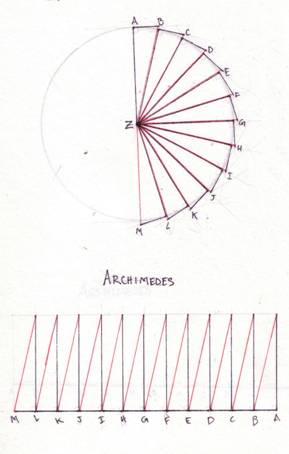 A
B
C
D
E
F
Z
G
H
I
J
K
L
M
ARCHIMEDES
M L K J I H G F E D C B A